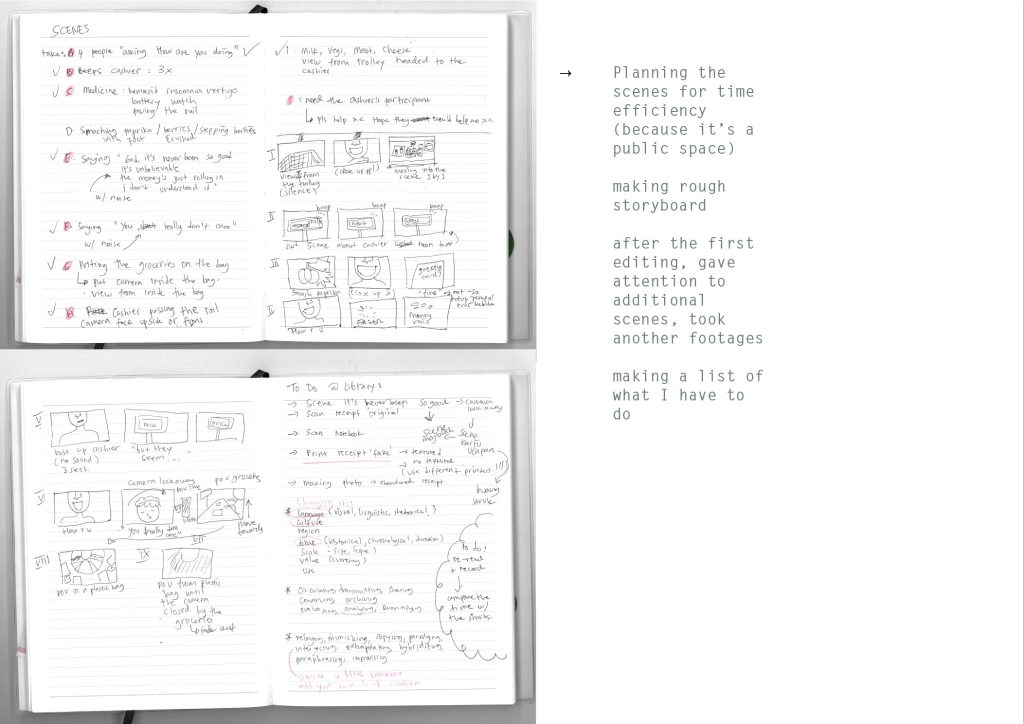 SCENES
take: A 4 people "asking How are you doing"
B Beeps cashier : 3x
C Medicine : insomnia vertigo
battery watch
passing the rail
D. Smashing paprika / berries / stepping berries
with foot
E. Saying "God, it's never been so good
it's unbelievable
the money's just rolling in
i don't understand it"
w/ noise
Saying "You really don't care"
w/ noise
Putting the groceries on the bag
put camera inside the bag.
view from inside the bag
Cashier passing the rail
camera face upside or front.
1 : Milk, Vegs, Meat, Cheese
view from trolley headed to the
cashier
: need the cashier's participant
pls help xc Hope they would help me xc
I
view from
the trolley
(silence)
(close up)
moving into the
scene 1 by 1
II
beep
beep
beep
scene about cashier
III
greeting
card?
Smash paprika
close up
IV
How r u
money
V
bust up cashier
(no sound)
3 secs.
"but they
seem..."
VI
camera look away
pov groceries
How r u
"You really don't
care"
move
towards
VII
VIII
pov in a plastic bag
IX
pov from plastic
bag until
the camera
closed by the
groceries
fade out
To Do @ library
→ Scene it's never been so good → camera
look away
→ Scan receipt original
→ Scan notebook
→ Print receipt 'fake' → textured
→ no textured
(use different printer)
→ making photo → receipt
Changing its:
* language (visual, linguistic, rhetorical)
culture
region
time (historical, chronological, duration)
scale - size, scope)
value (currency)
use
to do:
re-read
+ record
compare the
time w/
the shorts.
* Circulating, transmitting, sharing
conserving, archiving
evaluating, analysing, quantifying
* relaying, mimicking, copying, parodying,
intersecting, extrapolating, hybriditing,
paraphrasing, improvising
make a little comment
add your own bit of
→ Planning the
scenes for time
efficiency
(because it's a
public space)
making rough
storyboard
after the first
editing, gave
attention to
additional
scenes, took
another footages
making a list of
what I have to
do